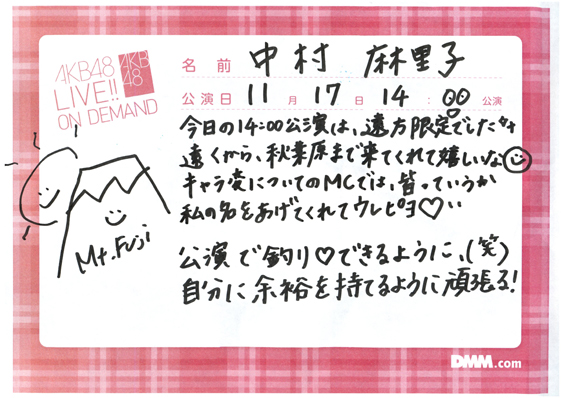 AKB48
LIVE!!
ON DEMAND
AKB
48
名前 中村 麻里子
公演日 11月17日 14:00公演
今日の14:00公演は、遠方限定でした
遠くから、秋葉原まで来てくれて嬉しいな
キャラ変についてのMCでは、皆っていうか
私の名をあげてくれてウレピヨ♡
公演で釣り♡できるように、(笑)
自分に余裕を持てるように頑張る!
Mt.Fuji
DMM.com